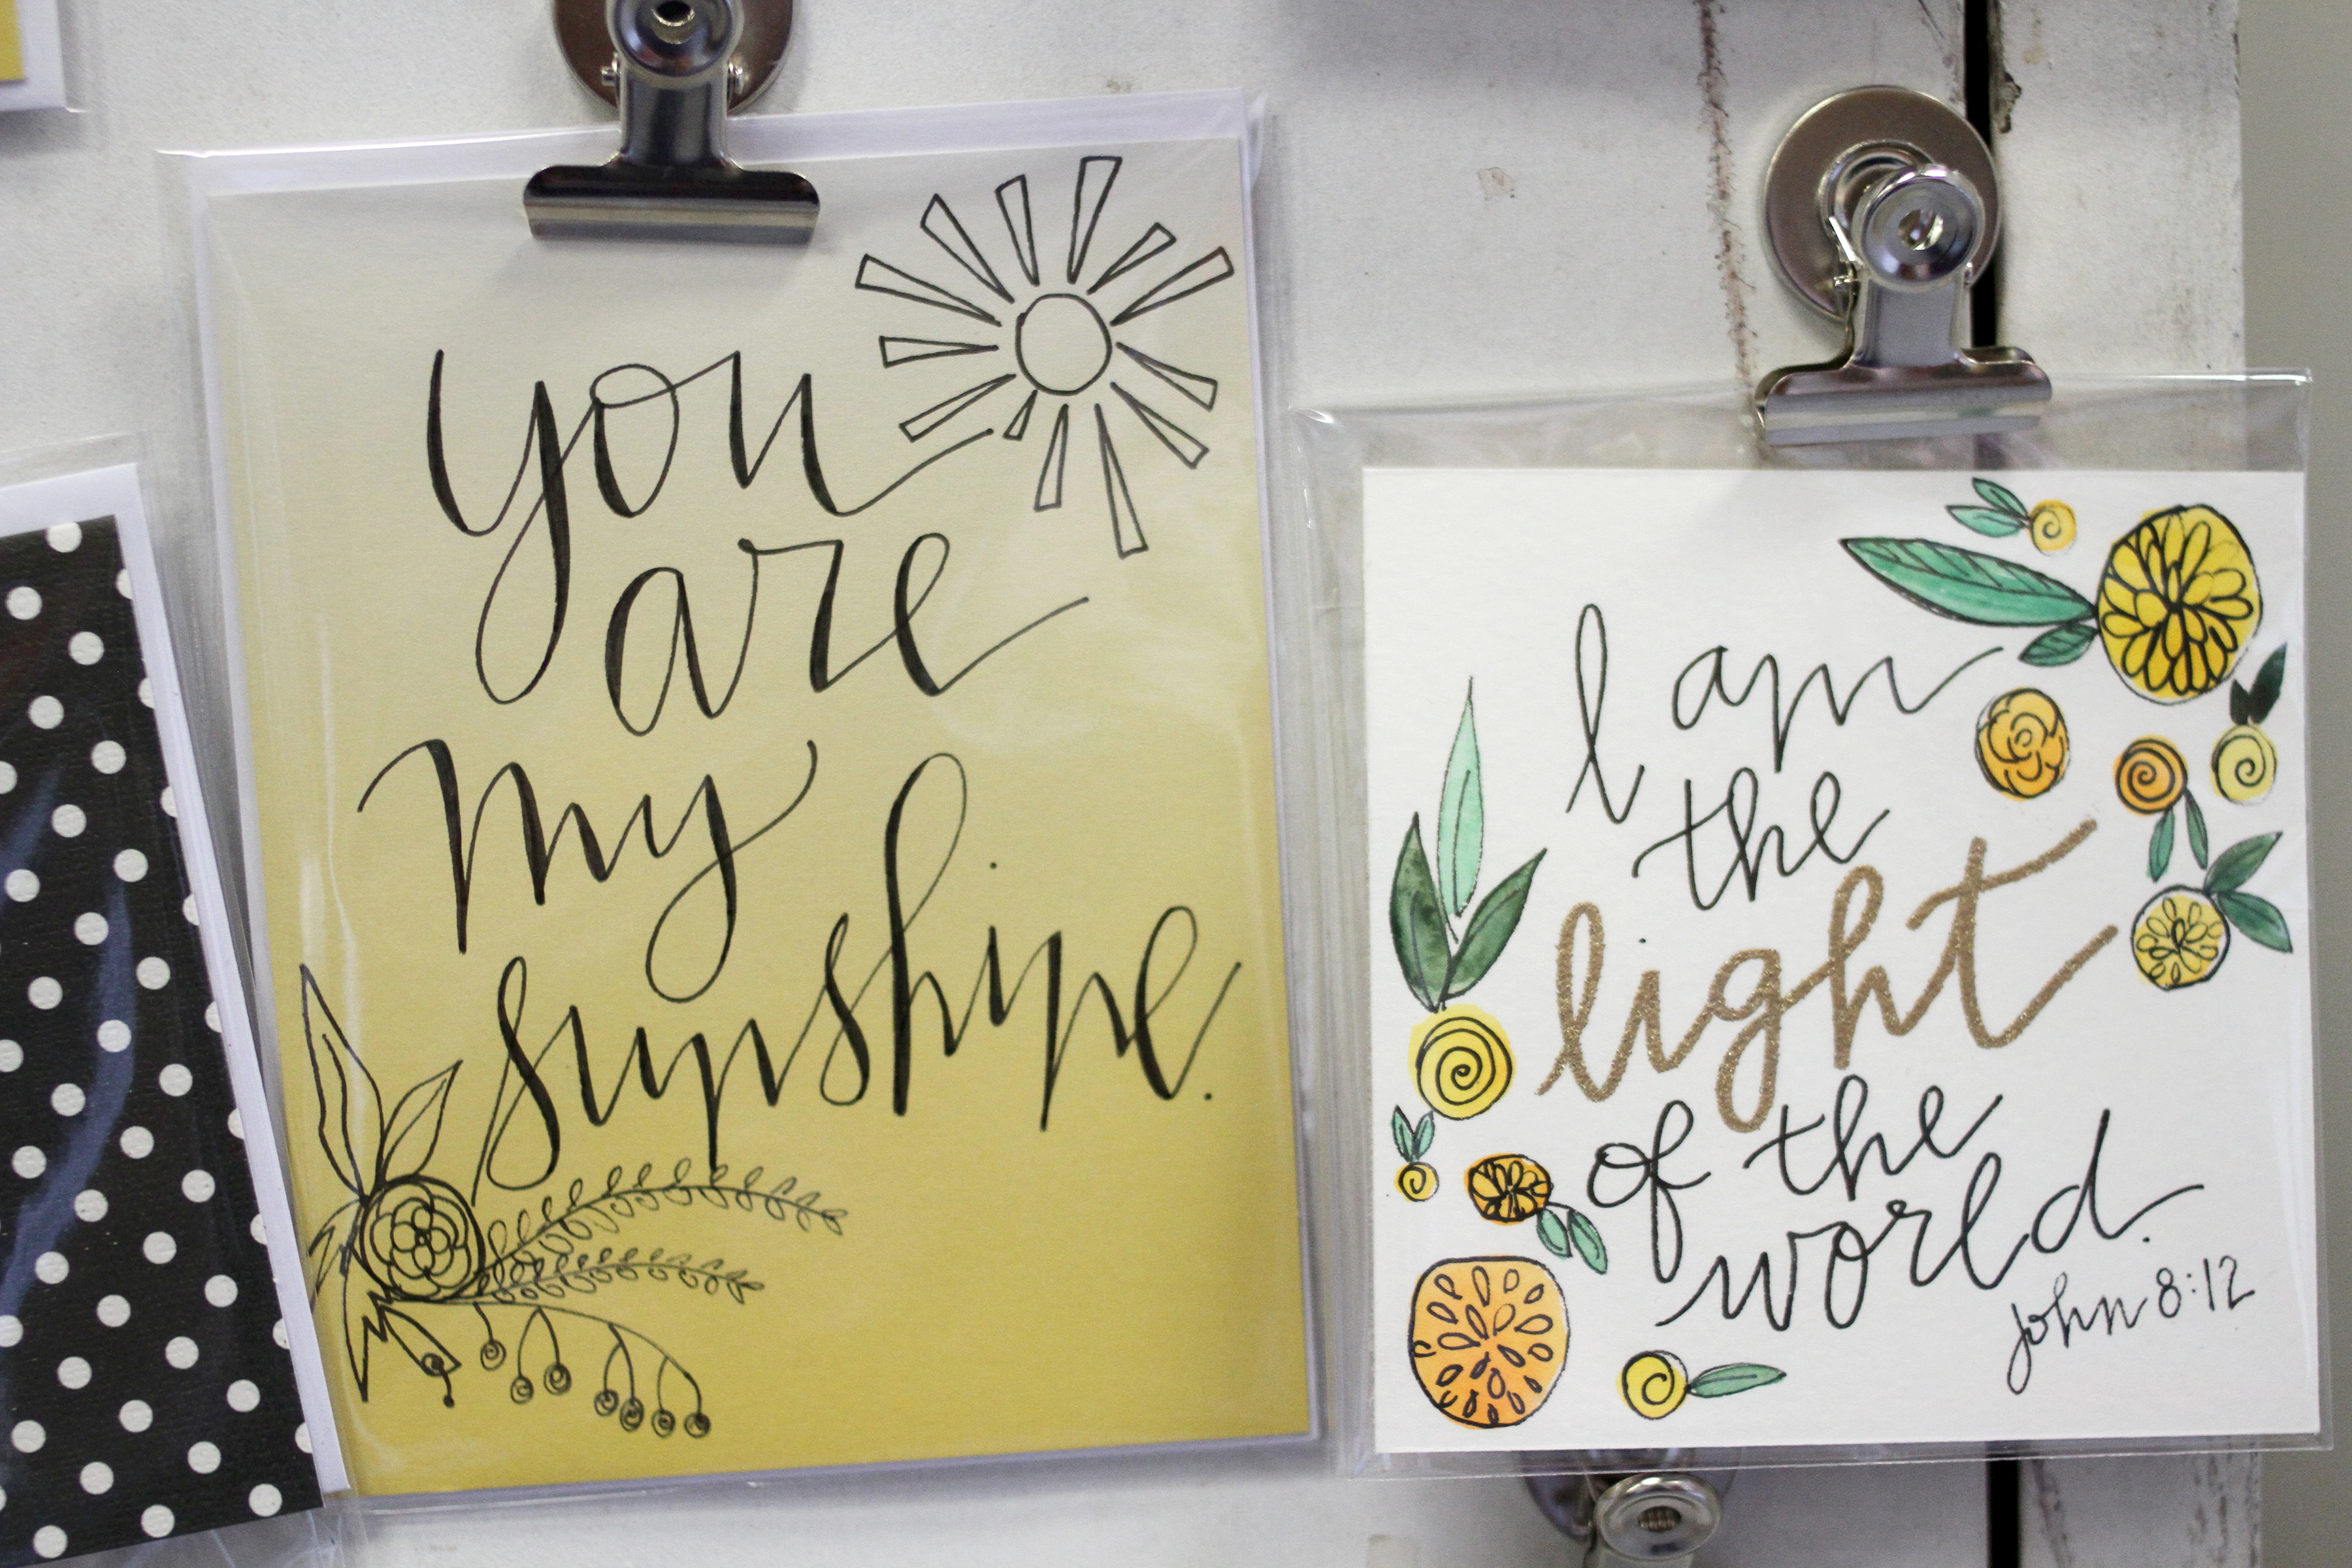 you
are
my
sunshine.
I am
the
light
of the
world.
John 8:12